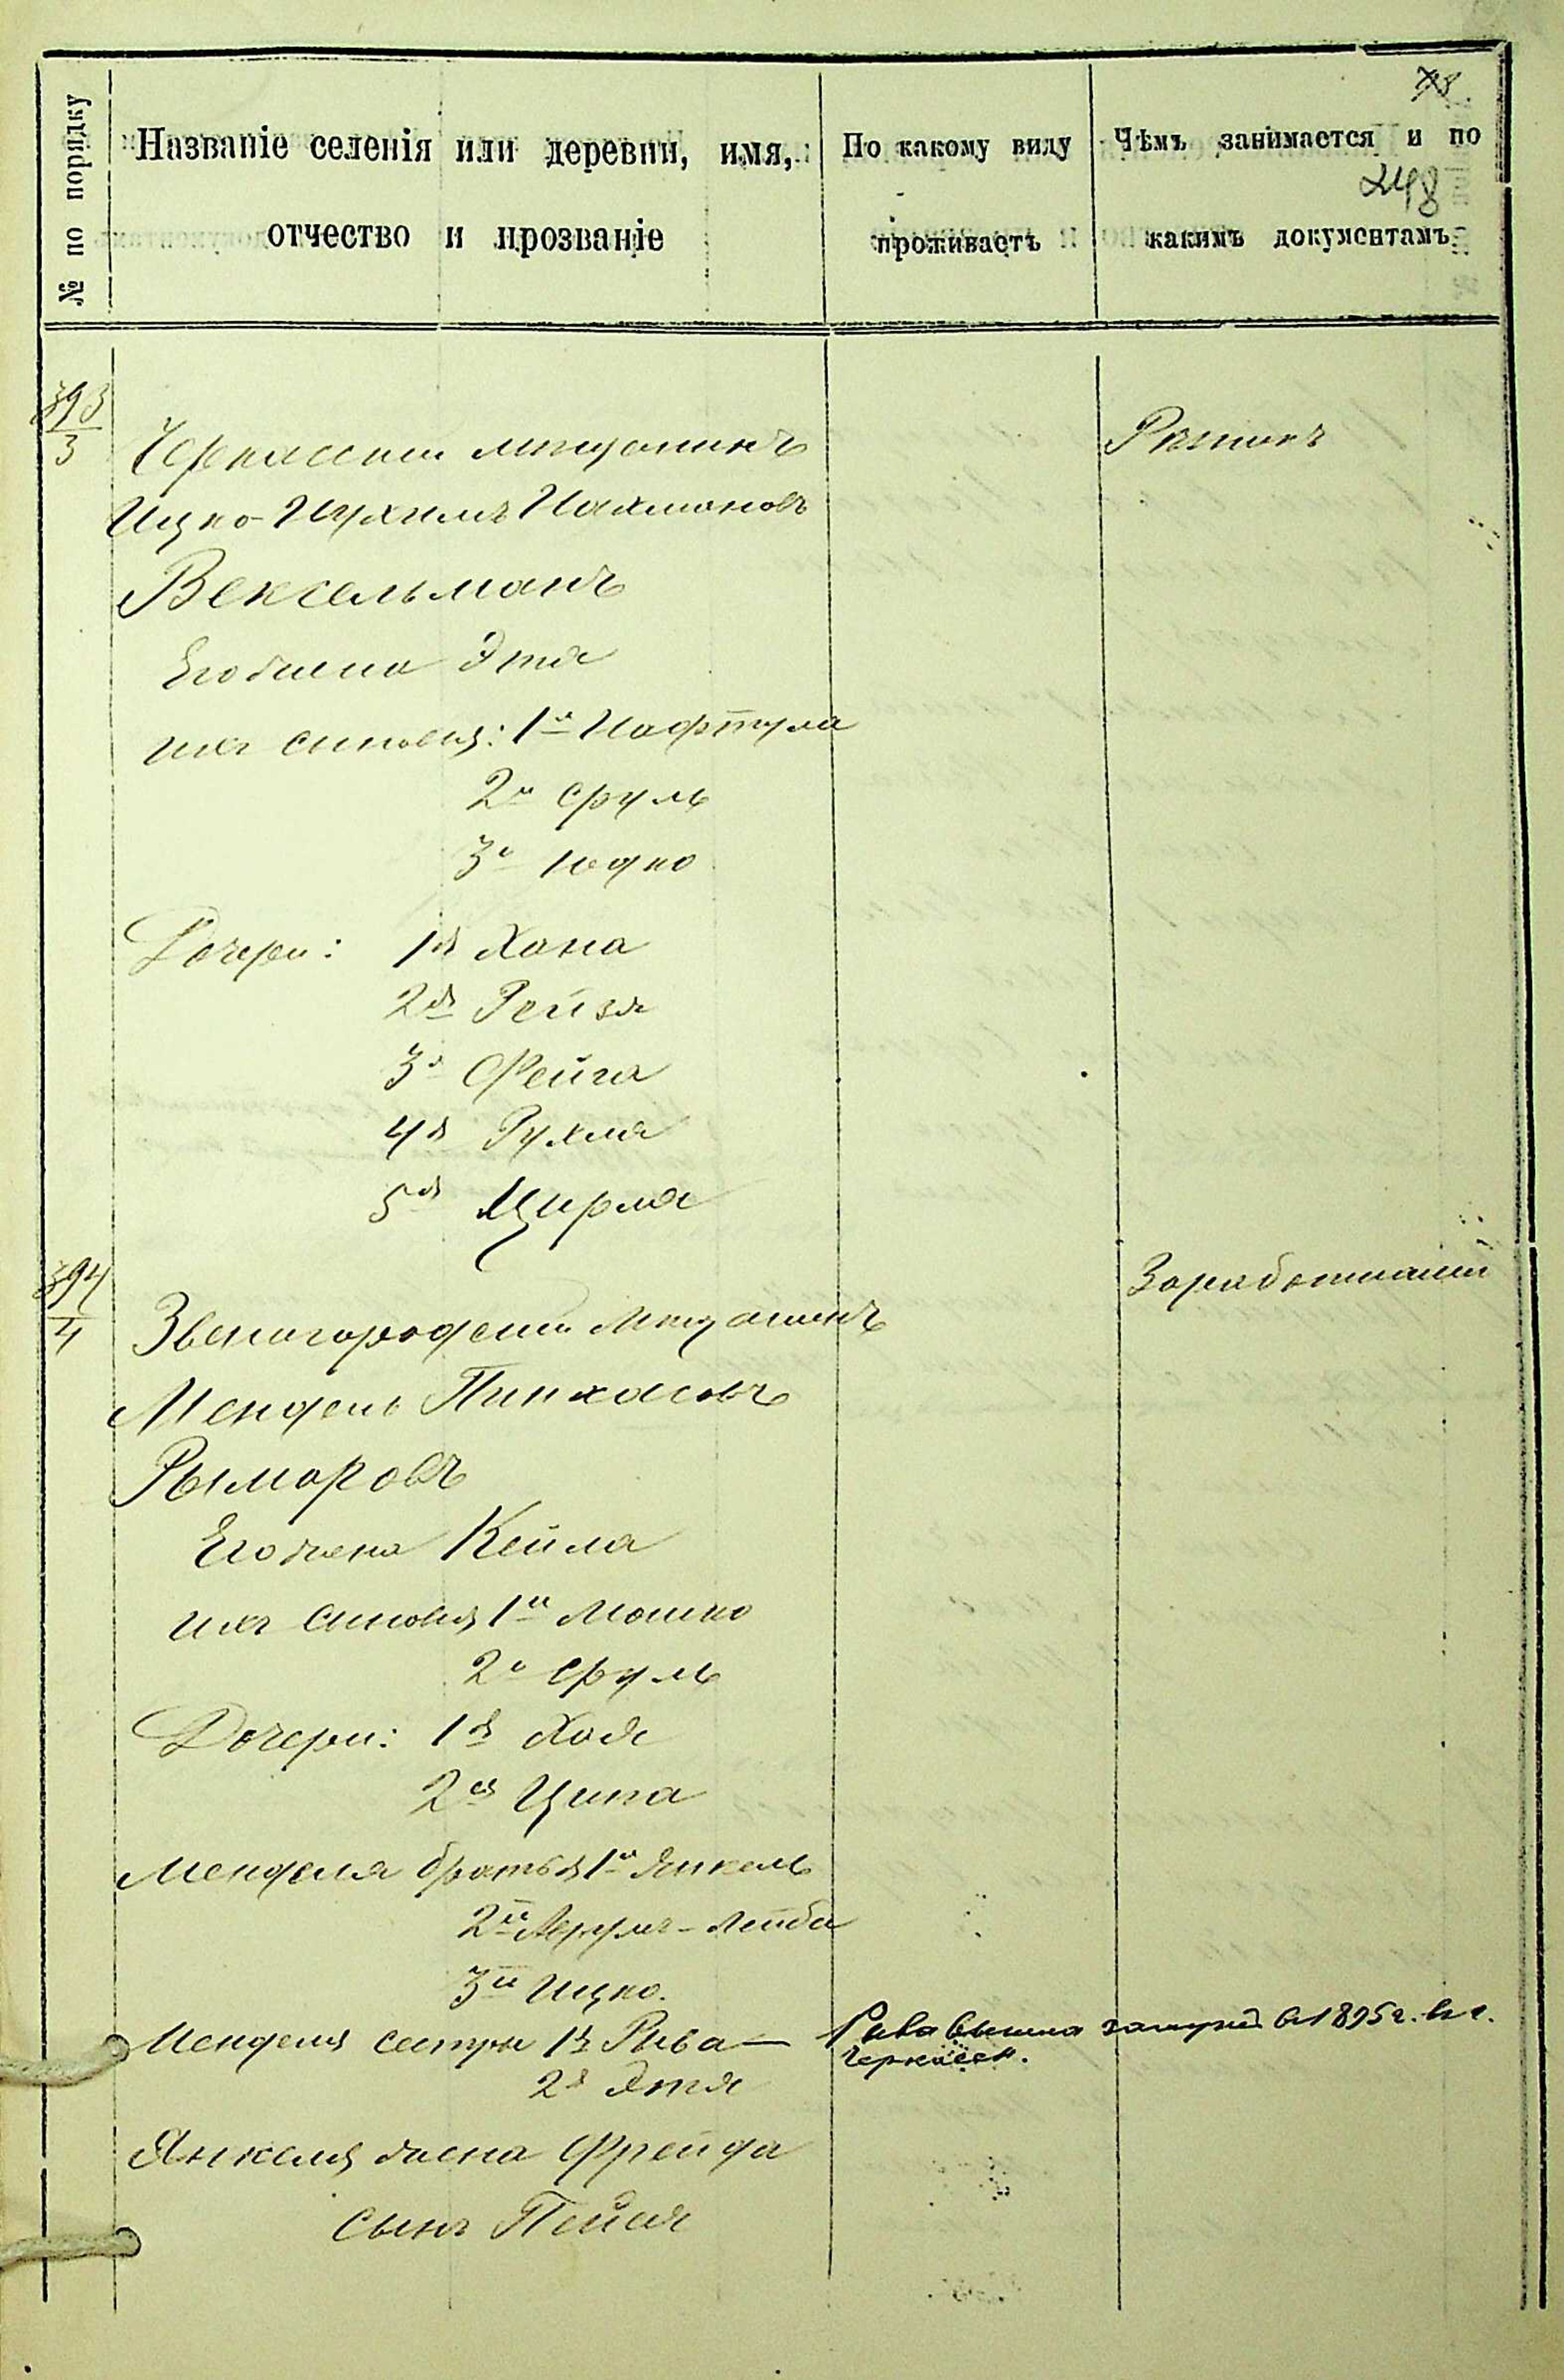 № по порядку
Названіе селенія или деревни, имя,
отчество и прозваніе
По какому виду
проживаетъ
Чѣмъ занимается и по
248
какимъ документамъ
393
3
Черкасскій мѣщанинъ
Ицко-Нухимъ Нахмановъ
Вексельманъ
Его жена Этя
ихъ сыновья: 1й Нафтула
2й Сруль
3й Юдко
Дочери: 1я Хана
2я Рейзя
3я Фейга
4я Рухля
5я Цирля
394
4
Заработками
Звенигородскій мѣщанинъ
Мендель Пинхасовъ
Рымаровъ
Его жена Кейла
ихъ сыновья 1й Мошко
2й Сруль
Дочери: 1я Хая
2я Ципа
Менделя братья 1й Янкель
2й - Лейба
3й Ицко.
Менделя сестры 1я Рива — Рива вышла замужъ въ 1895 г. въ г.
Черкассы.
2я Этя
Янкеля жена Фрейда
сынъ Пейся